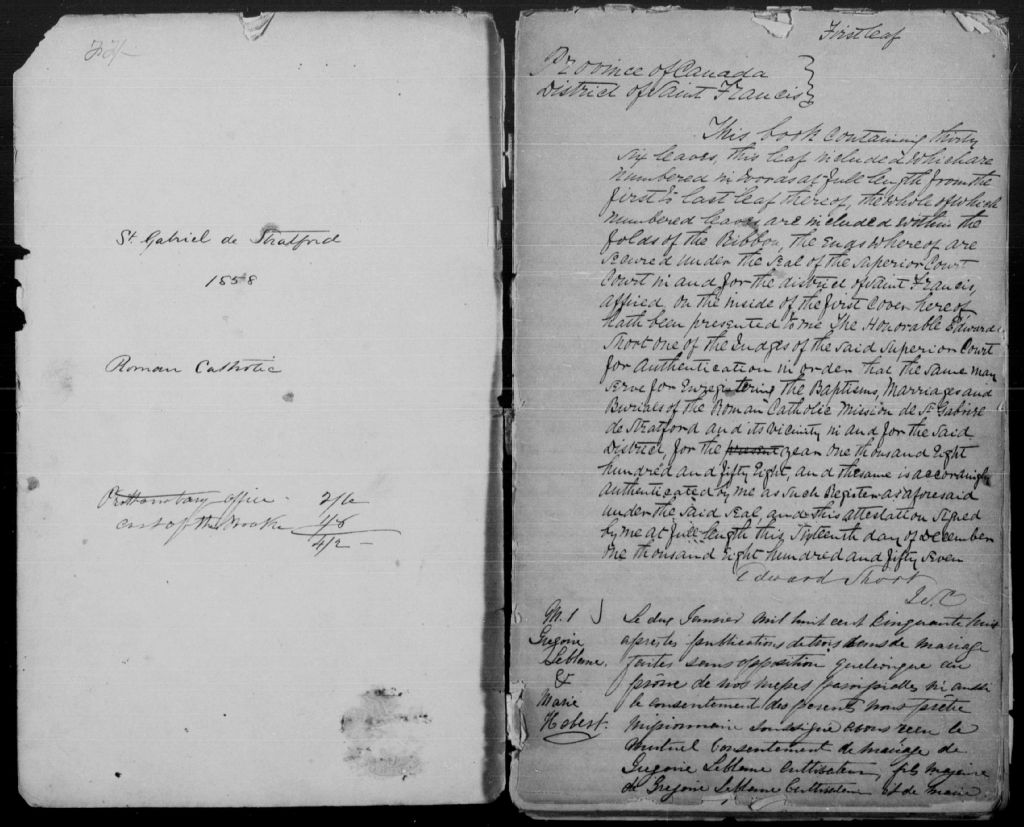 St Gabriel de Stratford
1858
Roman Catholic
Prothonotary office - 2/6
cost of the Book 1/8
4/2 -
First leaf
Province of Canada
District of Saint Francis
This book containing thirty
six leaves, this leaf included which are
numbered in words at full length from the
first to last leaf thereof, the whole of which
numbered leaves are included within the
folds of the Ribbon, the ends whereof are
secured under the seal of the Superior Court
Court in and for the district of Saint Francis,
affixed on the inside of the first cover hereof
hath been presented to me The Honorable Edward
Short one of the Judges of the said Superior Court
for authentication in order that the same may
serve for Enregistering the Baptisms, Marriages and
Burials of the Roman Catholic Mission de St Gabriel
de Stratford and its vicinity in and for the said
District, for the present year one thousand Eight
hundred and fifty Eight, and the same is accordingly
authenticated by me as such Register as aforesaid
under the said Seal, and this attestation signed
by me at full length this day of December
one thousand Eight hundred and fifty seven
Edward Short
J.S.C
M. 1
Gregoire
Leblanc
&
Marie
Hebert.
Le Janvier mil huit cent cinquante huit
après les publications de trois bans de mariage
faites sans opposition quelconque au
prône de nos messes paroissiales ni aussi
le consentement des parents nous prêtre
missionnaire soussigné avons reçu le
mutuel consentement de mariage de
Gregoire Leblanc cultivateur, fils majeur
de Gregoire Leblanc Cultivateur et de Marie